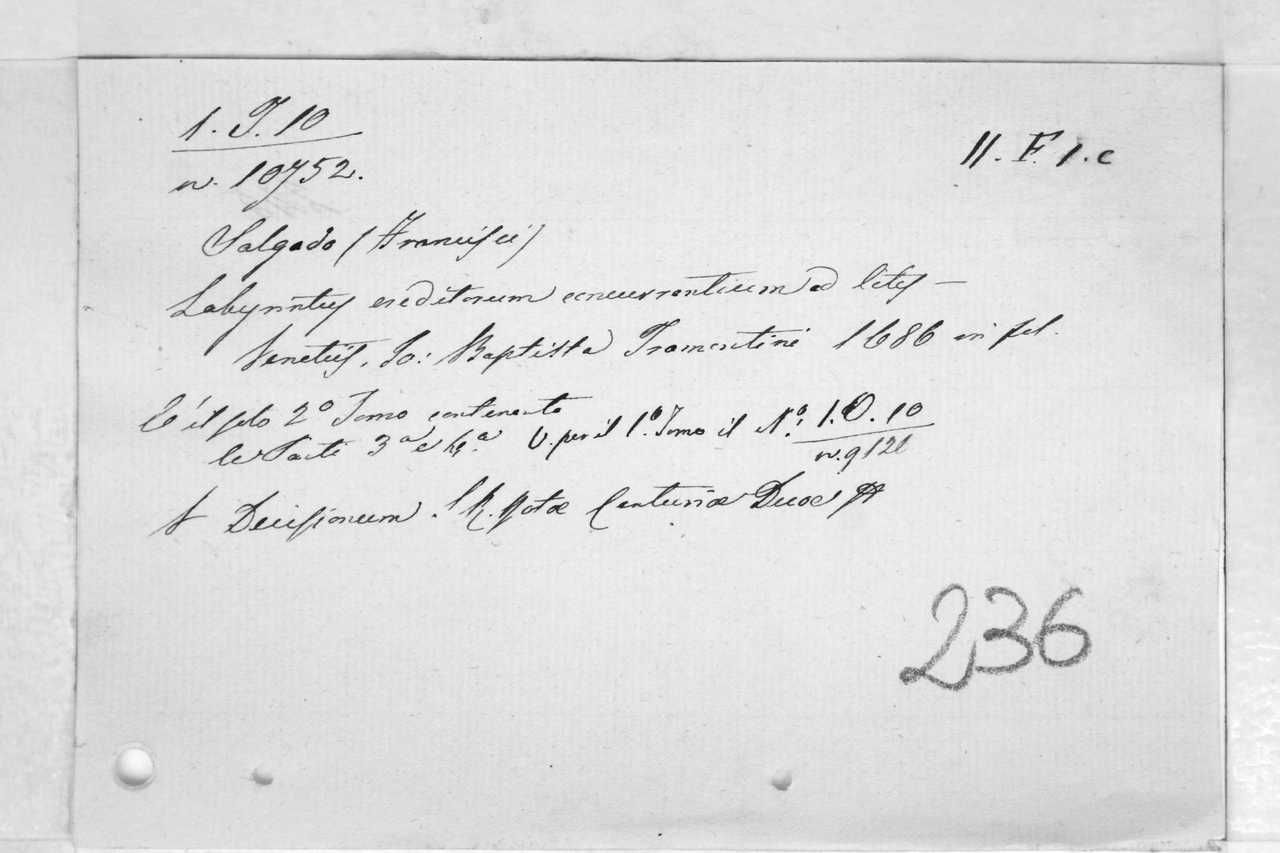 1. J. 10
n. 10752.
11. F. 1. c
Salgado (Francisci)
Labyrintus creditorum concurrentium ad lites —
Venetiis, Jo: Baptista Tramontini 1686 in fol.
C'è il solo 2º Tomo contenente
le Parti 3ª e 4ª. V. per il 1º Tomo il Nº: 1. O. 10
n. 9121
Decisionum S. R. Rotæ Centuriæ Duæ
236